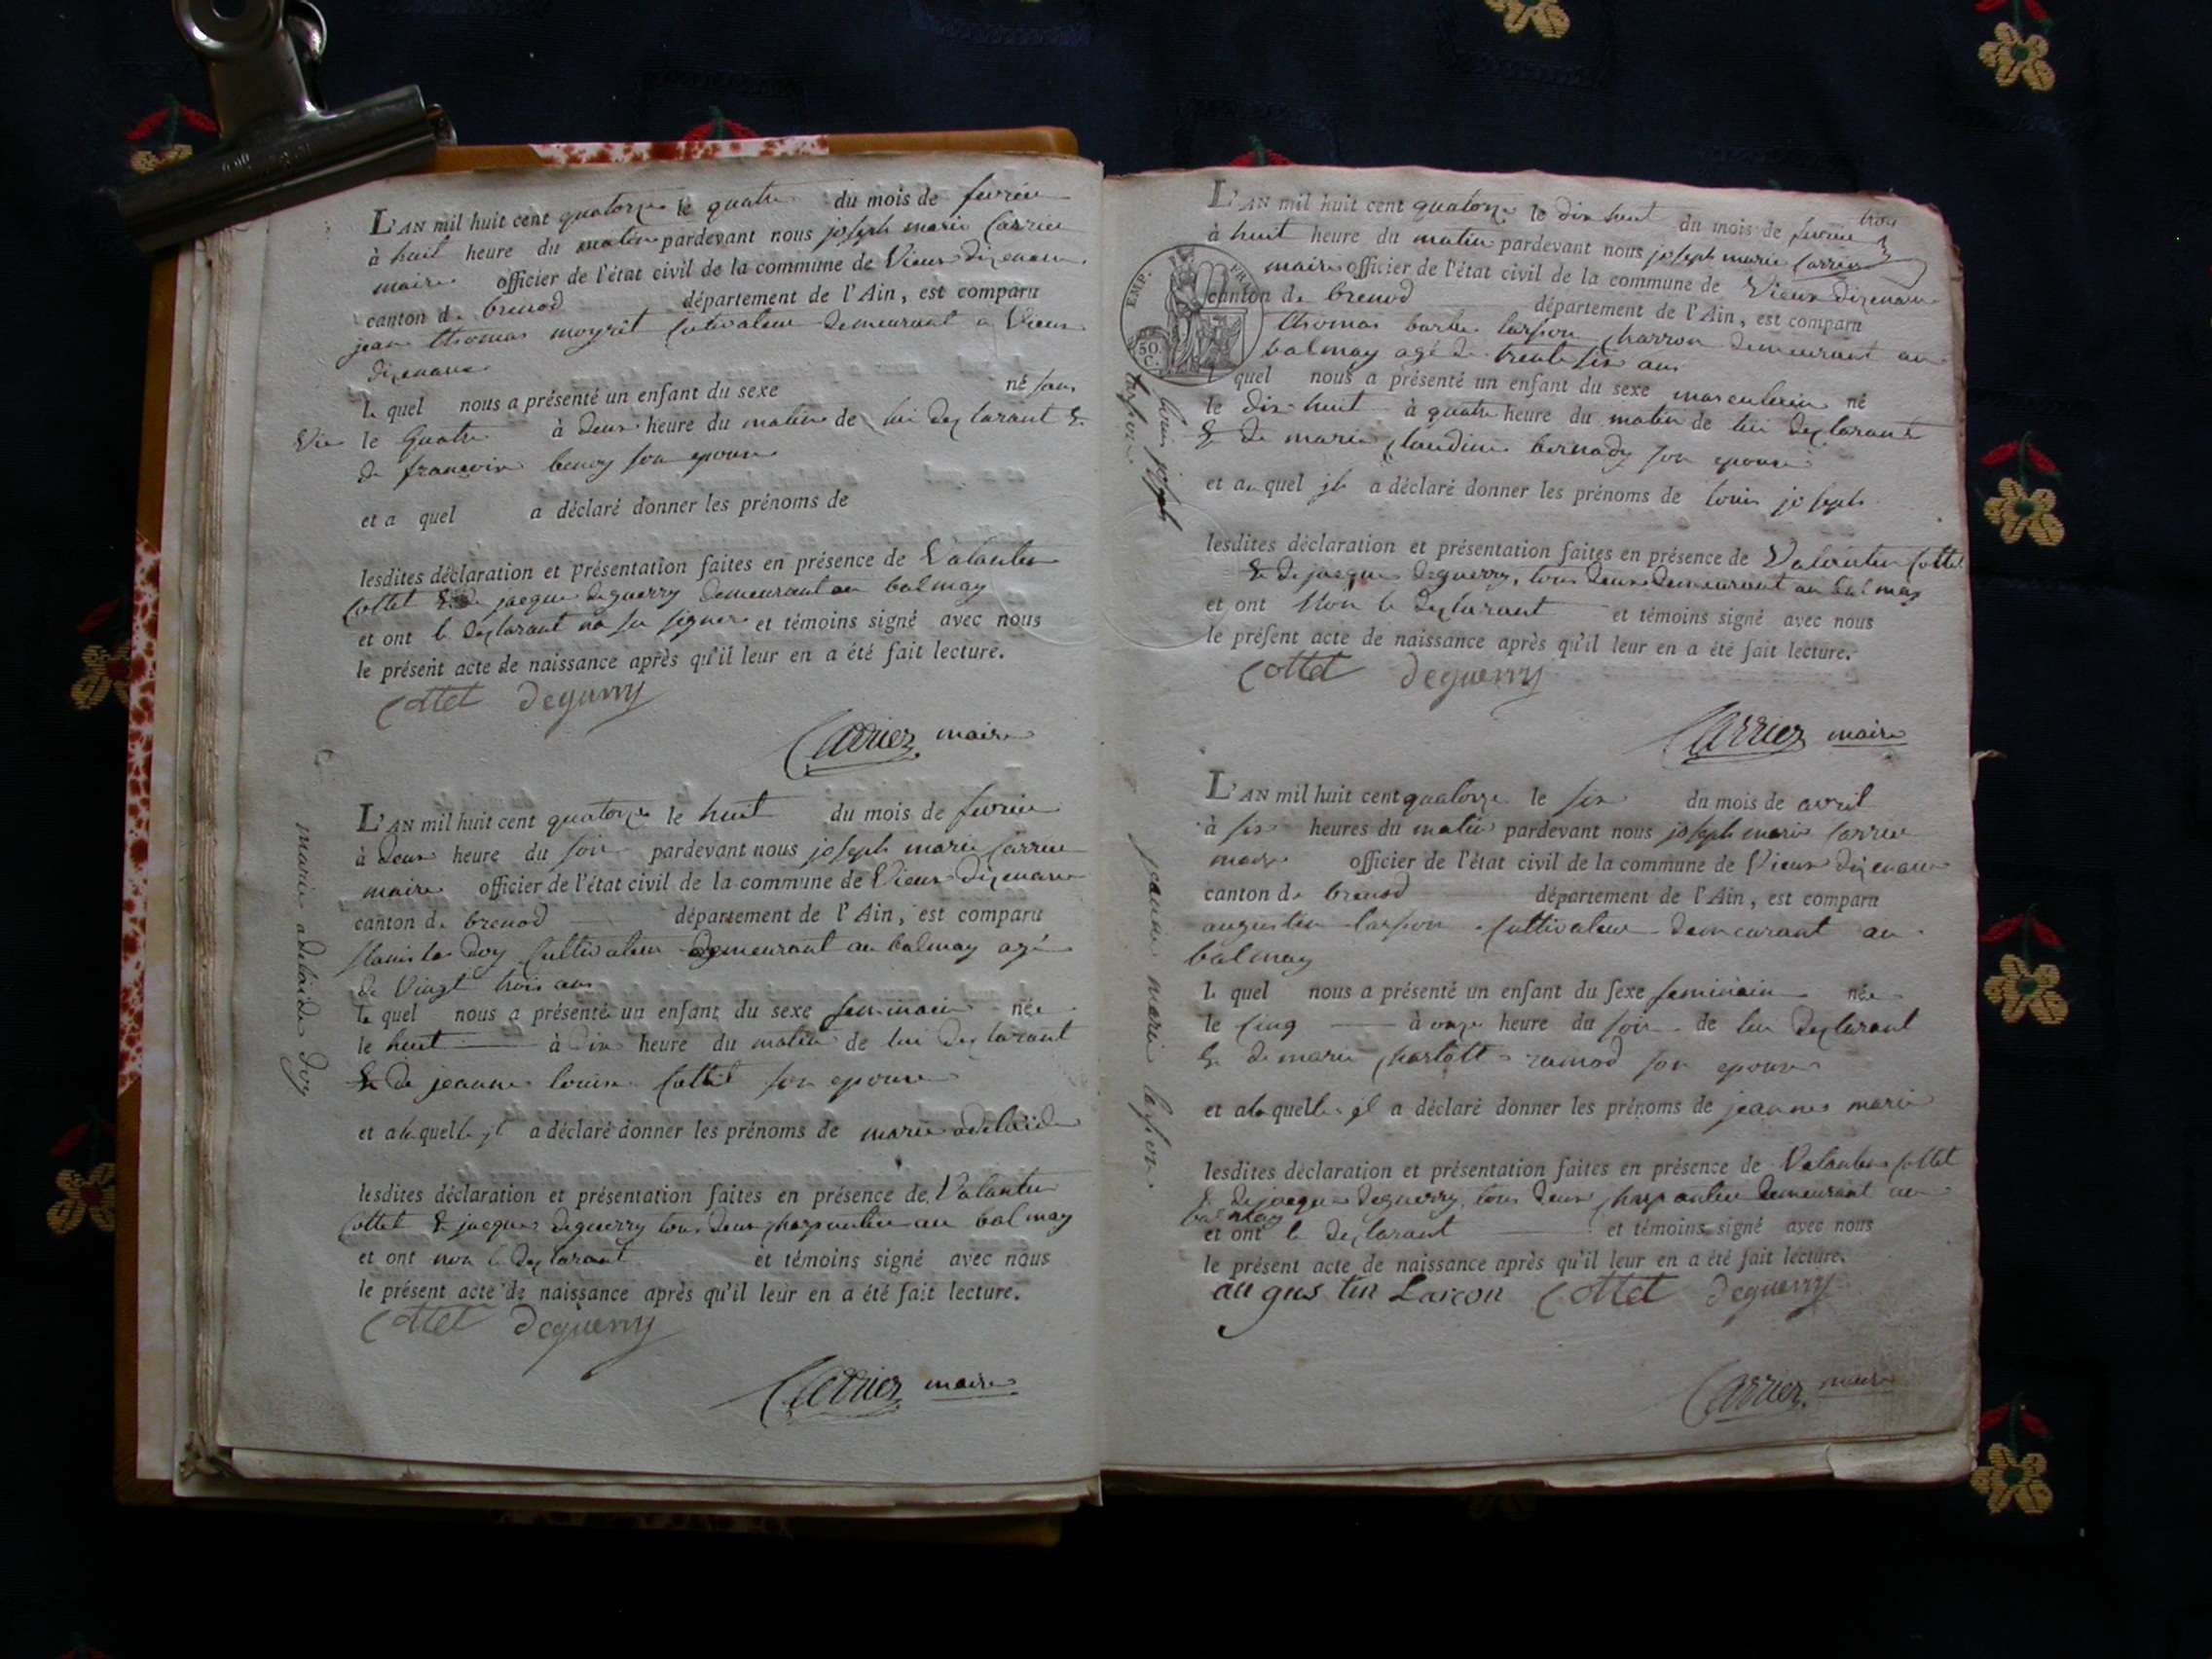 L'AN mil huit cent quatorze le quatre du mois de fevrier
à huit heure du matin pardevant nous joseph marie Carrier
maire officier de l'état civil de la commune de Vieux dizenave
canton de brenod département de l'Ain, est comparu
jean thomas moyret cutivateur demeurant a Vieux
dizenave
le quel nous a présenté un enfant du sexe né sans
Vie le quatre à deux heure du matin de lui declarant &
de françoise benoy son epouse
et a quel a déclaré donner les prénoms de
lesdites déclaration et présentation faites en présence de Valantin
Cottet & de jacque deguerry demeurant au balmay
et ont le declarant na su signer et témoins signé avec nous
le présent acte de naissance après qu'il leur en a été fait lecture.
Cottet deguerry
Carrier maire
marie adelaide doy
L'AN mil huit cent quatorze le huit du mois de fevrier
à deux heure du soir pardevant nous joseph marie Carrier
maire officier de l'état civil de la commune de Vieux dizenave
canton de brenod département de l'Ain, est comparu
stanislas doy Cultivateur demeurant au balmay agé
de Vingt trois ans
le quel nous a présenté un enfant du sexe feminain née
le huit à dix heure du matin de lui declarant
& de jeanne louise Cottet son epouse
et a la quelle jl a déclaré donner les prénoms de marie adelaide
lesdites déclaration et présentation faites en présence de Valantin
Cottet & jacques deguerry tous deux charpantier au balmay
et ont non le declarant et témoins signé avec nous
le présent acte de naissance après qu'il leur en a été fait lecture.
Cottet deguerry
Carrier maire
trois
L'AN mil huit cent quatorze le dix huit du mois de fevrier
à huit heure du matin pardevant nous joseph marie Carrier
maire officier de l'état civil de la commune de Vieux dizenave
canton de brenod département de l'Ain, est comparu
EMP. FRA
50 C.
thomas barbe larson charron demeurant au
balmay agé de trente six ans
louis joseph larson
le quel nous a présenté un enfant du sexe masculin né
le dix-huit à quatre heure du matin de lui declarant
& de marie claudine bernady son epouse
et au quel jl a déclaré donner les prénoms de louis joseph
lesdites déclaration et présentation faites en présence de Valantin Cottet
& de jacques deguerry, tous deux demeurant au balmay
et ont Non le declarant et témoins signé avec nous
le présent acte de naissance après qu'il leur en a été fait lecture.
Cottet deguerry
Carrier maire
jeanne marie larson
L'AN mil huit cent quatorze le six du mois de avril
à six heures du matin pardevant nous joseph marie Carrier
maire officier de l'état civil de la commune de Vieux dizenave
canton de brenod département de l'Ain, est comparu
augustin larson Cultivateur demeurant au
balmay
le quel nous a présenté un enfant du sexe feminain née
le cinq à onze heure du soir de lui declarant
& de marie charlott ramod son epouse
et a la quelle il a déclaré donner les prénoms de jeanne marie
lesdites déclaration et présentation faites en présence de Valantin Cottet
& de jacques deguerry, tous deux charpantier demeurant au
balmay
et ont le declarant et témoins signé avec nous
le présent acte de naissance après qu'il leur en a été fait lecture.
augustin Larcon Cottet deguerry
Carrier maire